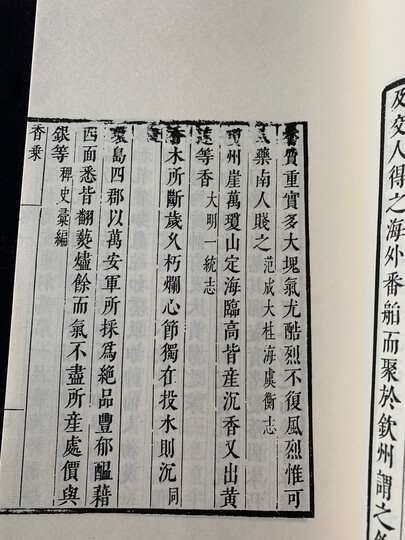 及交人得之海外番舶而聚於欽州謂之
香質重實多大塊氣尤酷烈不復風烈惟可
入藥南人賤之 范成大桂海虞衡志
瓊州崖萬瓊山定海臨高皆産沉香又出黃
速等香 大明一統志
香木所斷歲久朽爛心節獨在投水則沉 同
環島四郡以萬安軍所採爲絶品豐郁醖藉
四面悉皆翻爇燼餘而氣不盡所産處價與
銀等 稗史彙編
香乘